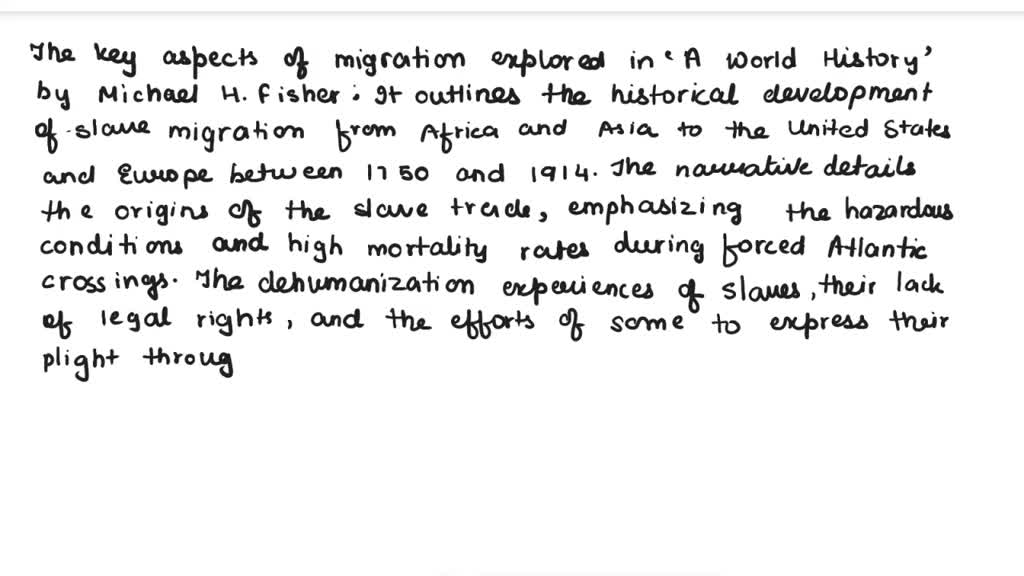 The key aspects of migration explored in 'A World History'
by Michael H. Fisher. It outlines the historical development
of slave migration from Africa and Asia to the United States
and Europe between 1750 and 1914. The narrative details
the origins of the slave trade, emphasizing the hazardous
conditions and high mortality rates during forced Atlantic
crossings. The dehumanization experiences of slaves, their lack
of legal rights, and the efforts of some to express their
plight throug